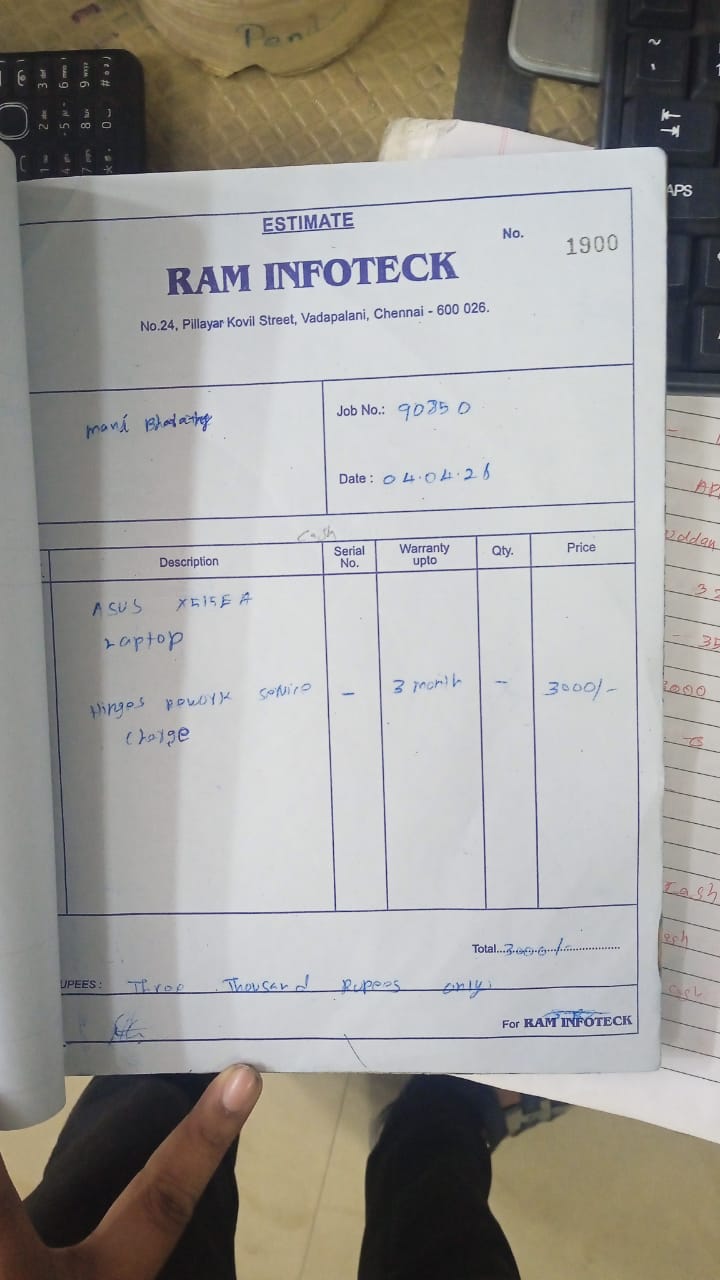 Pand
ESTIMATE
No. 1900
RAM INFOTECK
No.24, Pillayar Kovil Street, Vadapalani, Chennai - 600 026.
Mani
Job No.: 90350
Date : 04.04.26
Cash
Description Serial No. Warranty upto Qty. Price
ASUS X515EA
Laptop
Hinges rework service - 3 month - 3000/-
charge
Total...3000/-
UPEES : Three Thousand Rupees only.
For RAM INFOTECK
APS
3000
Cash
cash